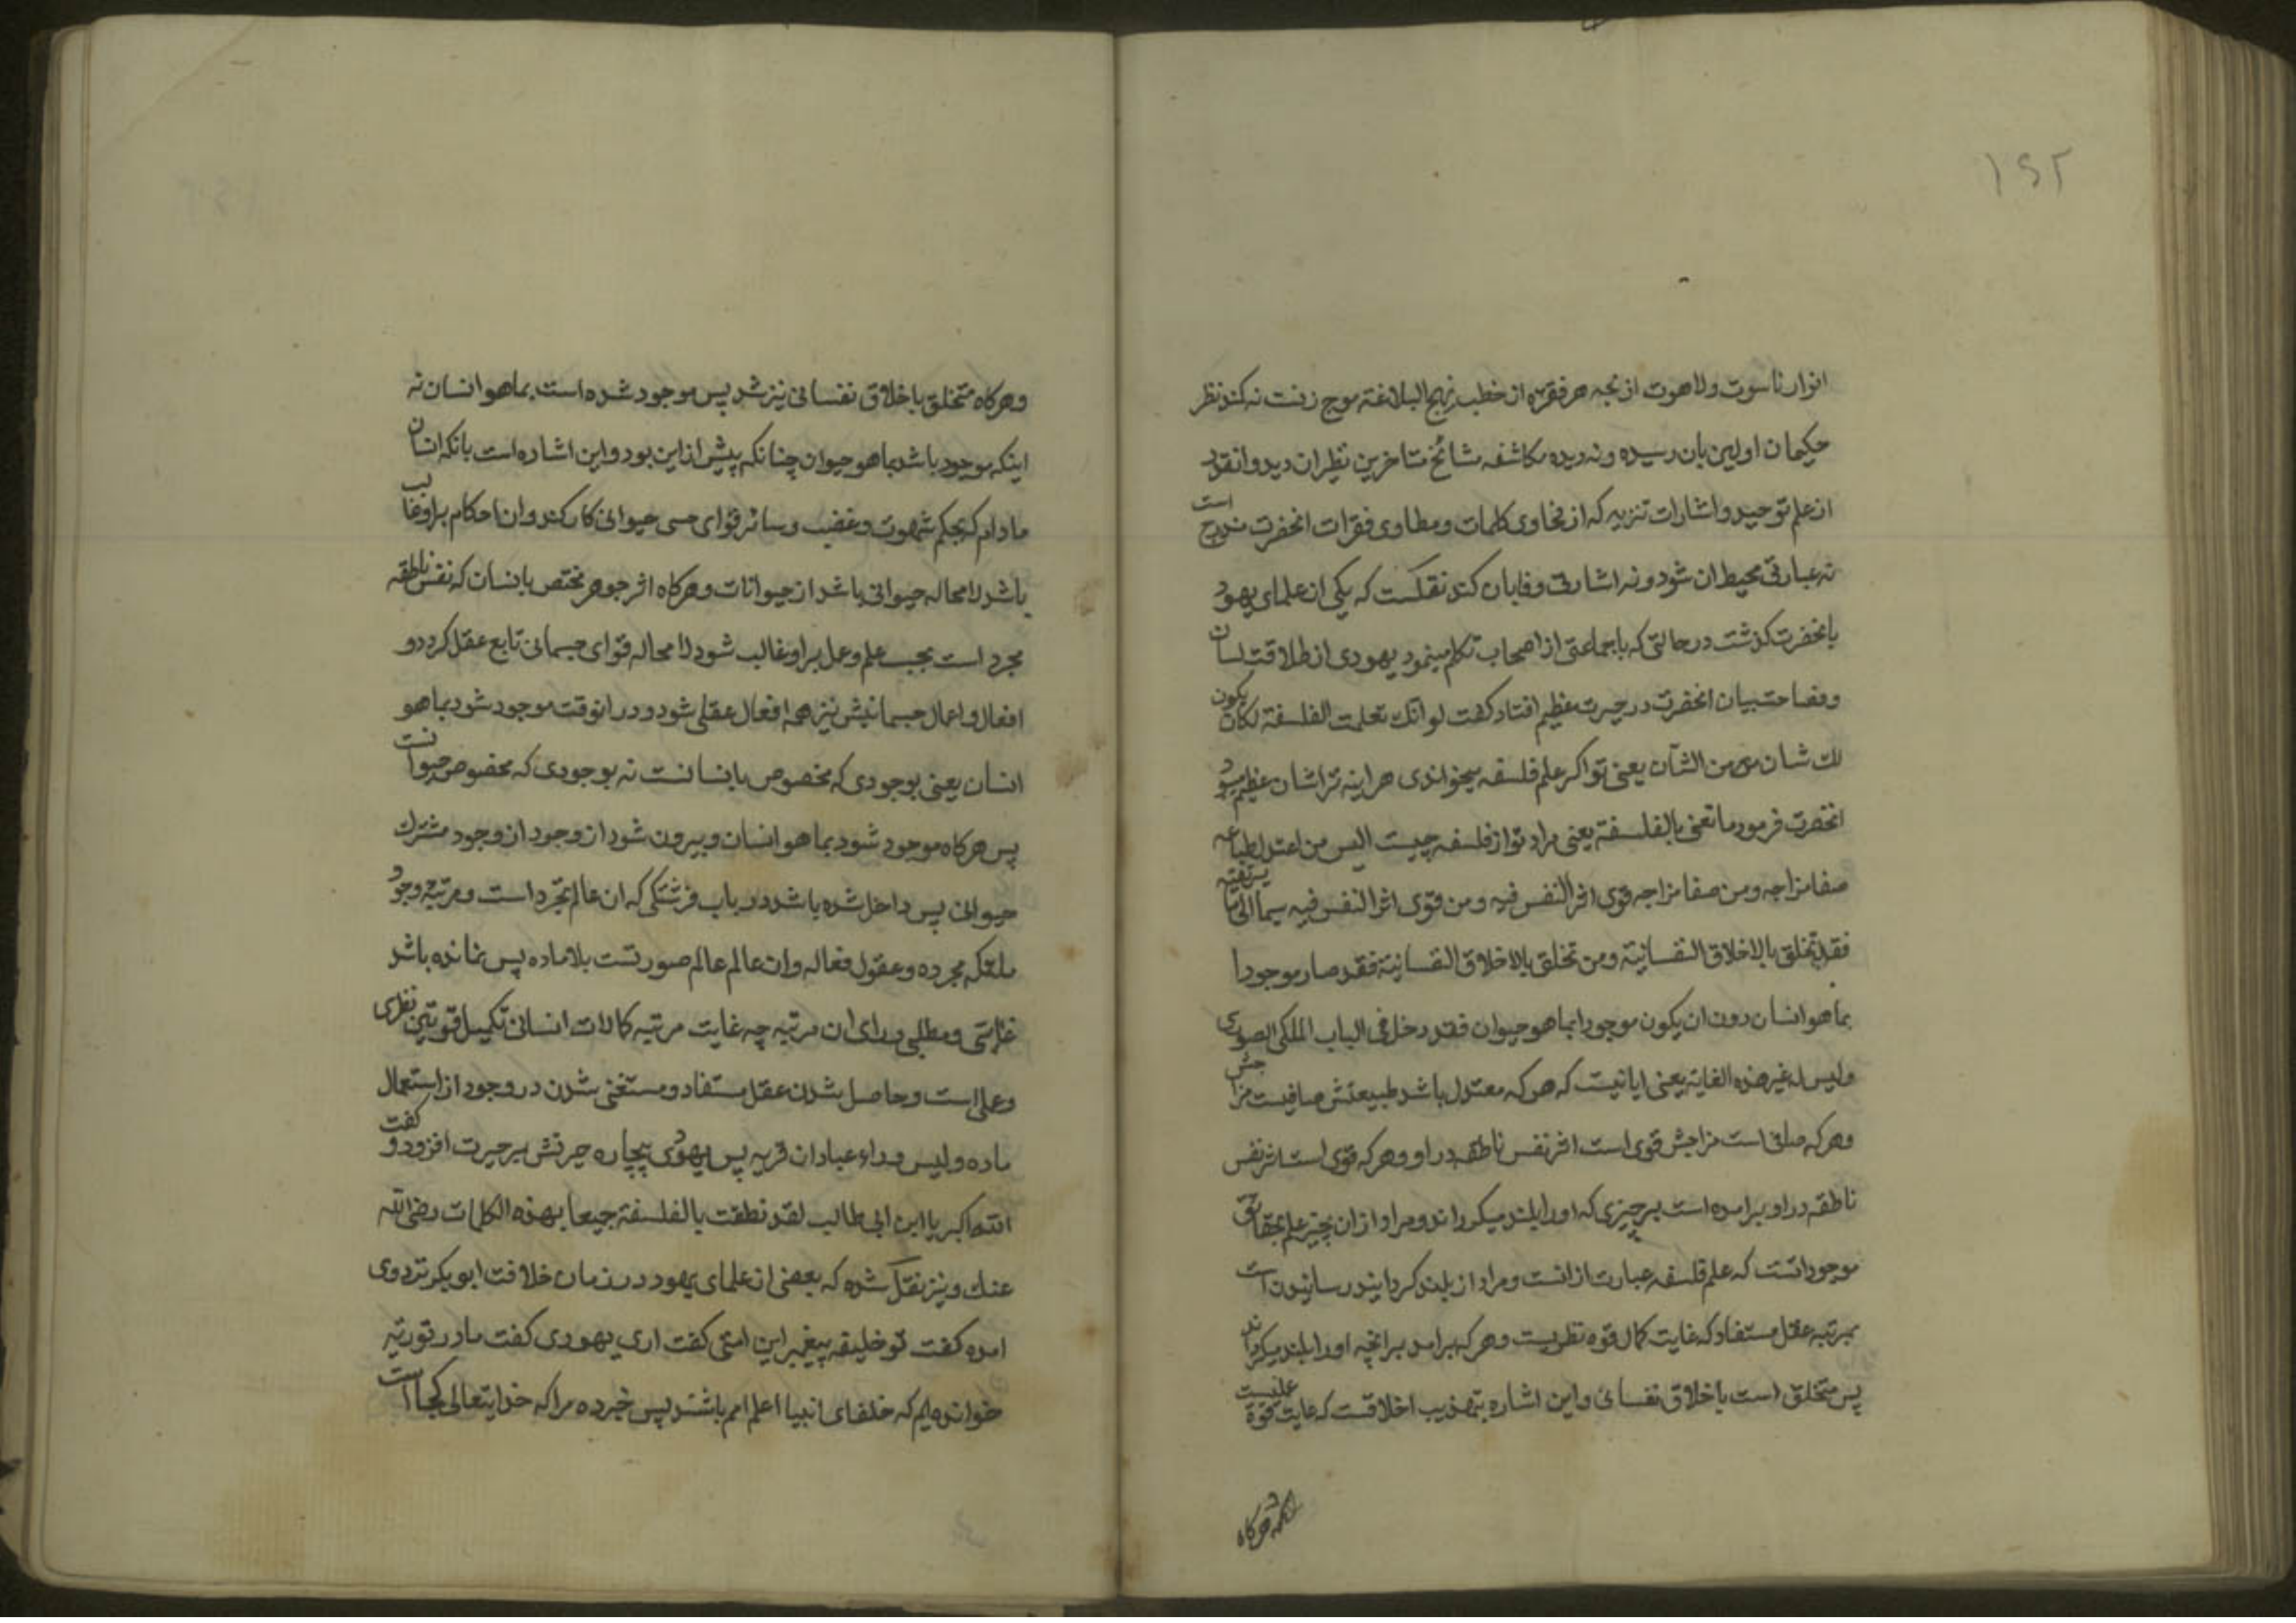 ١٤٢
انوار ناسوت ولاهوت از نجه هر فقره از خطب نهج البلاغة موج زنست نه کند نظر
حکیمان اولین بان رسیده و نه دیده مکاشفه مشائخ متاخرین نظیر ان دیده وانقدر
از علم توحید واشارات تنزیه که از فحاوی کلمات ومطاوی فقرات انحضرت مندرج است
نه عبارتی محیط ان شود و نه اشارتی وفا بان کند نقلست که یکی از علمای یهود
بانحضرت کذشت در حالتی که با جماعتی از اصحاب تکلم مینمود یهودی از طلاقت لسان
وفصاحت بیان انحضرت در حیرت عظیم افتاد کفت لو انك تعلمت الفلسفة لکان یکون
لك شان من الشأن یعنی تو اکر علم فلسفه میخواندی هراینه ترا شان عظیم میبود
انحضرت فرمود ما تعنی بالفلسفة یعنی مراد تو از فلسفه چیست الیس من اعتدل طباعه
صفا مزاجه ومن صفا مزاجه قوی اثر النفس فیه ومن قوی اثر النفس فیه سما الی ما یرتقیه
فقد تخلق بالاخلاق النفسانیة ومن تخلق بالاخلاق النفسانیة فقد صار موجودا
بما هو انسان دون ان یکون موجودا بما هو حیوان فقد دخل فی الباب الملکی الصوری
ولیس له غیر هذه الغایة یعنی ایا نیست که هر که معتدل باشد طبیعتش صافیست مزاجش
وهر که صافی است مزاجش قوی است اثر نفس ناطقه در او وهر که قوی است اثر نفس
ناطقه در او برامده است بر چیزی که اورا بلند میکرداند ومراد از ان چیز علم بحقائق
موجوداتست که علم فلسفه عبارت از انست ومراد از بلند کردانیدن رسانیدن است
بمرتبه عقل مستفاد که غایت کمال قوه نظریست وهر که برامد برانچه اورا بلند میکرداند
پس متخلق است باخلاق نفسانی واین اشاره بتهذیب اخلاقست که غایت قوة عملیست
وهرکاه
وهرکاه متخلق باخلاق نفسانی نیز شد پس موجود شده است بما هو انسان نه
اینکه موجود باشد بما هو حیوان چنانکه پیش از این بود واین اشاره است بانکه انسان
مادام که بحکم شهوت وغضب وسائر قوای حسی حیوانی کار کند وان احکام براو غالب
باشد لا محاله حیوانی باشد از حیوانات وهرکاه اثر جوهر مختص بانسان که نفس ناطقه
مجرد است بحسب علم وعمل براو غالب شود لا محاله قوای جسمانی تابع عقل کردد و
افعال واعمال جسمانیش نیز همه افعال عقلی شود ودر انوقت موجود شود بما هو
انسان یعنی بوجودی که مخصوص بانسانست نه بوجودی که مخصوص حیوانست
پس هرکاه موجود شود بما هو انسان وبیرون شود از وجود از وجود مشترك
حیوانی پس داخل شده باشد در باب فرشتکی که ان عالم تجرد است ومرتبه وجود
ملئکه مجرده وعقول فعاله وان عالم عالم صورتست بلا ماده پس نمانده باشد
غایتی ومطلبی ورای ان مرتبه چه غایت مرتبه کمالات انسانی تکمیل قوتین نظری
وعملی است وحاصل شدن عقل مستفاد ومستغنی شدن در وجود از استعمال
ماده ولیس وراء عبادان قریه پس یهودی بیچاره حیرتش بر حیرت افزود و کفت
الله اکبر یا ابن ابی طالب لقد نطقت بالفلسفة جمیعا بهذه الکلمات رضی الله
عنك ونیز نقل شده که بعضی از علمای یهود در زمان خلافت ابو بکر نزد وی
امده کفت تو خلیفه پیغمبر این امتی کفت اری یهودی کفت ما در توریة
خوانده ایم که خلفای انبیا اعلم امم باشند پس خبر ده مرا که خدایتعالی کجا است